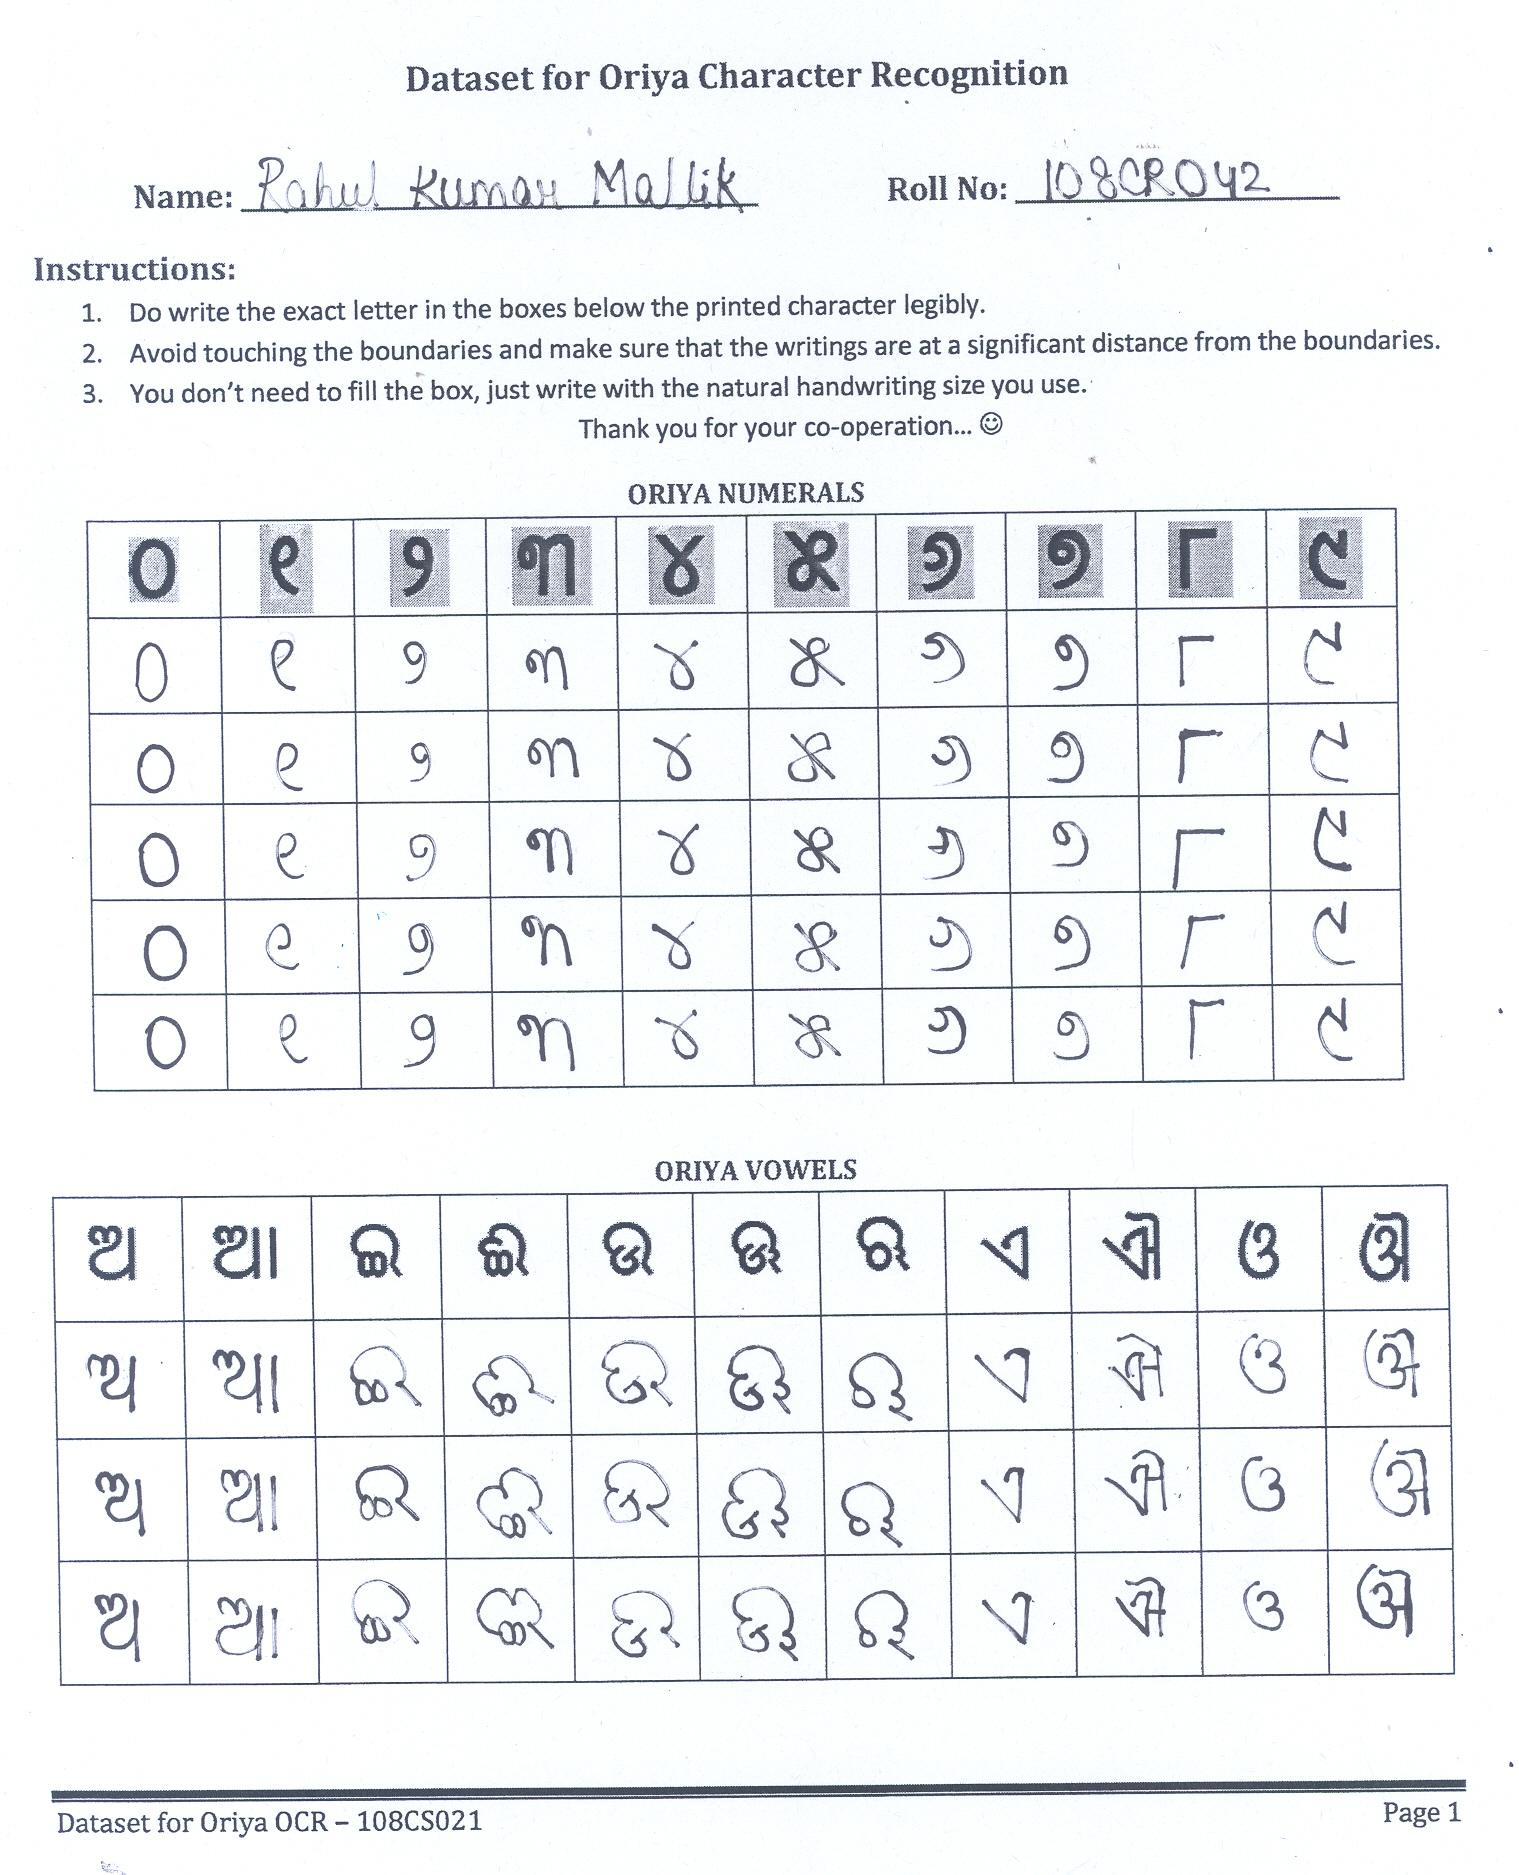 Dataset for Oriya Character Recognition
Name: Rahul Kumar Mallik Roll No: 108CR042
Instructions:
1. Do write the exact letter in the boxes below the printed character legibly.
2. Avoid touching the boundaries and make sure that the writings are at a significant distance from the boundaries.
3. You don't need to fill the box, just write with the natural handwriting size you use.
Thank you for your co-operation... ☺
ORIYA NUMERALS
୦ ୧ ୨ ୩ ୪ ୫ ୬ ୭ ୮ ୯
୦ ୧ ୨ ୩ ୪ ୫ ୬ ୭ ୮ ୯
୦ ୧ ୨ ୩ ୪ ୫ ୬ ୭ ୮ ୯
୦ ୧ ୨ ୩ ୪ ୫ ୬ ୭ ୮ ୯
୦ ୧ ୨ ୩ ୪ ୫ ୬ ୭ ୮ ୯
୦ ୧ ୨ ୩ ୪ ୫ ୬ ୭ ୮ ୯
ORIYA VOWELS
ଅ ଆ ଇ ଈ ଉ ଊ ଋ ଏ ଐ ଓ ଔ
ଅ ଆ ଇ ଈ ଉ ଊ ଋ ଏ ଐ ଓ ଔ
ଅ ଆ ଇ ଈ ଉ ଊ ଋ ଏ ଐ ଓ ଔ
ଅ ଆ ଇ ଈ ଉ ଊ ଋ ଏ ଐ ଓ ଔ
Dataset for Oriya OCR – 108CS021 Page 1